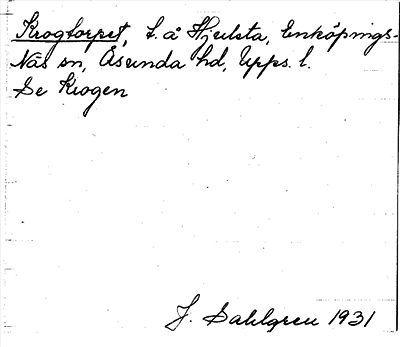 Krogtorpet, t. å Hjulsta, Enköpings-
Näs sn, Åsunda hd, Upps. l.
Se Krogen
J. Sahlgren 1931